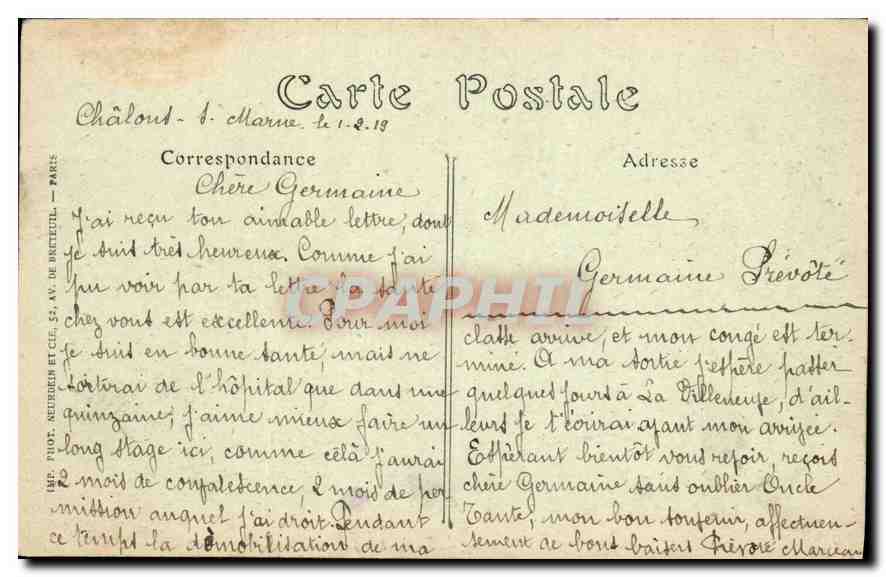 Carte Postale
Châlons - s. Marne. le 1-2-19
Correspondance
Chère Germaine
J'ai reçu ton aimable lettre, dont
je suis très heureux. Comme j'ai
pu voir par ta lettre la santé
chez vous est excellente. Pour moi
je suis en bonne santé, mais ne
sortirai de l'hôpital que dans une
quinzaine, j'aime mieux faire un
long stage ici, comme célà j'aurai
2 mois de convalescence, 2 mois de per
mission auquel j'ai droit. Pendant
ce temps la démobilisation de ma
Adresse
Mademoiselle
Germaine Prévôté
classe arrive, et mon congé est ter-
miné. A ma sortie j'espère passer
quelques jours à La Villeneuve, d'ail-
leurs je t'écrirai avant mon arrivée.
Espèrant bientôt vous revoir, reçois
chère Germaine sans oublier Oncle
Tante, mon bon souvenir, affectueu-
sement de bons baisers Prévoté Marceau
IMP. PHOT. NEURDEIN ET CIE, 52, AV. DE BRETEUIL. — PARIS
CPAPHIL